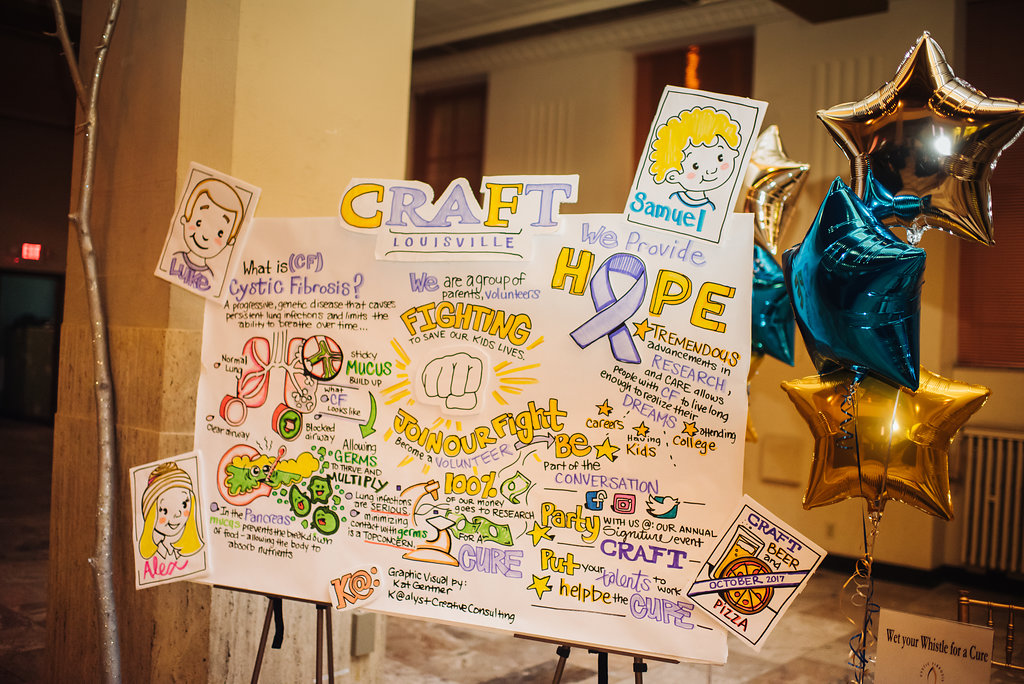 CRAFT
LOUISVILLE
Luke
Samuel
Alex
What is (CF)
Cystic Fibrosis?
A progressive, genetic disease that causes
persistent lung infections and limits the
ability to breathe over time...
Normal
Lung
sticky
MUCUS
BUILD UP
what
CF
Looks like
Clear airway
Blocked
airway
Allowing
GERMS
TO THRIVE AND
MULTIPLY
Lung infections
are SERIOUS
minimizing
contact with germs
IS A TOP CONCERN
In the Pancreas
mucus prevents the breakdown
of food - allowing the body to
absorb nutrients
We are a group of
parents, volunteers
FIGHTING
TO SAVE OUR KIDS LIVES.
JOIN OUR Fight
Become a VOLUNTEER
100%
OF OUR MONEY
GOES TO RESEARCH
FOR A
CURE
We Provide
HOPE
TREMENDOUS
advancements in
RESEARCH
and CARE allows
people with CF to live long
enough to realize their
DREAMS
careers
Having
Kids
attending
College
BE
Part of the
CONVERSATION
Party
WITH US @: OUR ANNUAL
Signature event
CRAFT
Put your talents to work
help be the CURE
CRAFT
BEER
and
OCTOBER 2017
PIZZA
K@
Graphic Visual by:
Kat Gentner
K@alyst Creative Consulting
Wet your Whistle for a Cure